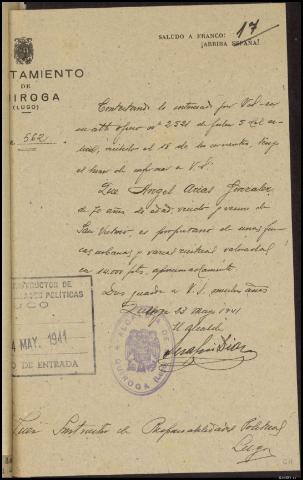 17
SALUDO A FRANCO:
¡ARRIBA ESPAÑA!
TAMIENTO
DE
IROGA
(LUGO)
562
Contestando lo interesado por Vd. en
su atto oficio nº 2521 de fecha 5 del
recibido el 18 de los corrientes, tengo
el honor de informar a V.S.
Que Angel Arias Gonzalez,
de 70 años de edad, viudo y vecino de
San Victorio, es propietario de unas fin-
cas urbanas y varias rústicas valoradas
en 14.000 pts. aproximadamente.
Dios guarde a V.S. muchos años
Quiroga 23 mayo 1941
El Alcalde
INSTRUCTOR DE
DADES POLÍTICAS
LUGO
4 MAY. 1941
O DE ENTRADA
QUIROGA
Juez Instructor de Responsabilidades Politicas
Lugo